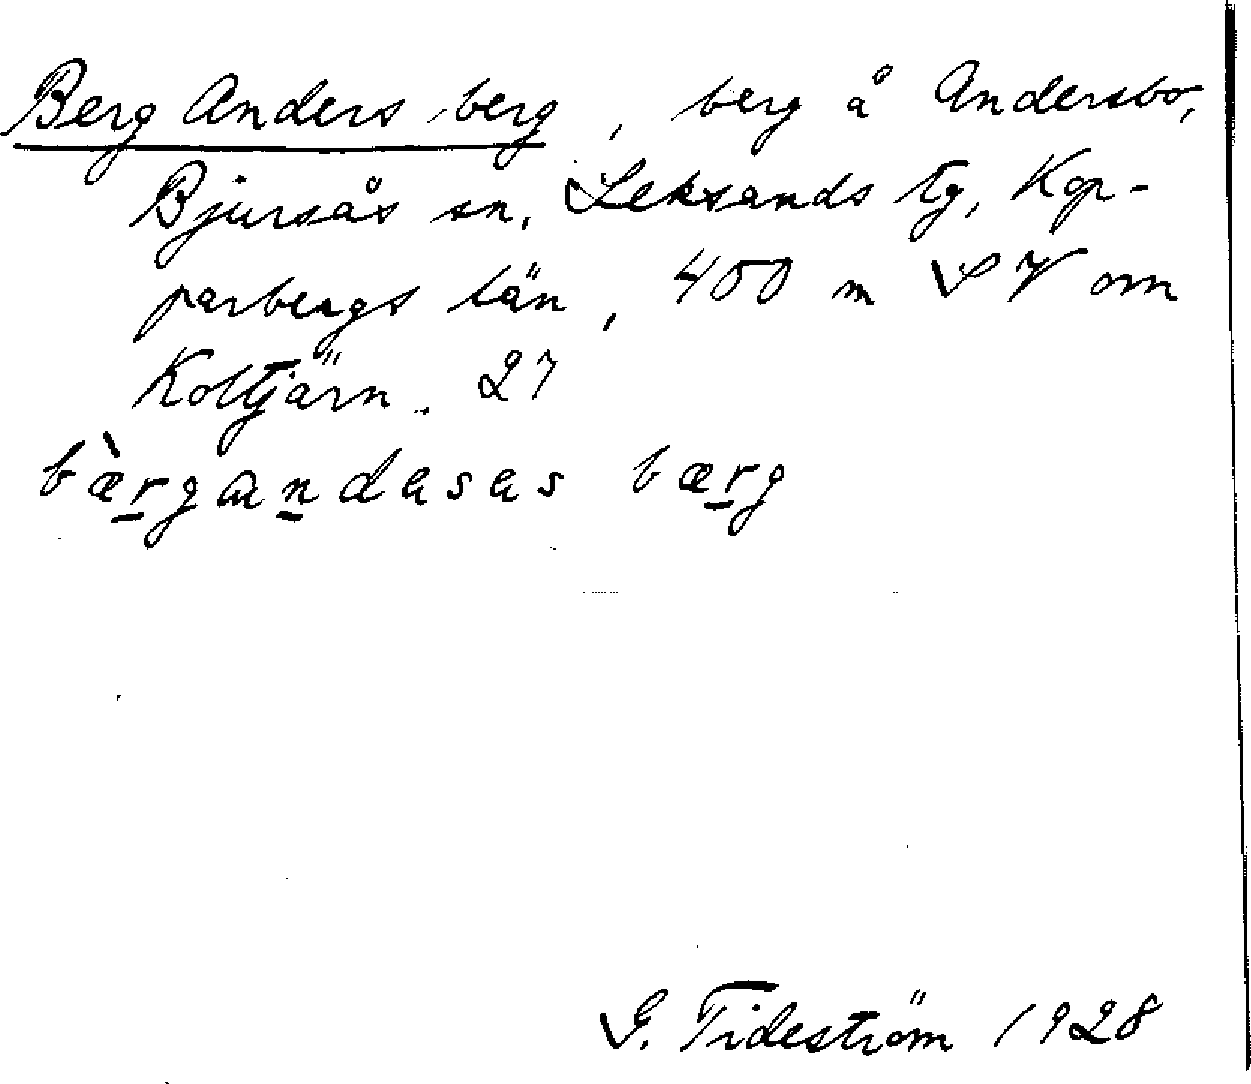 Berg Anders berg, berg å Andersbo,
Bjursås sn, Leksands tg, Kop-
parbergs län, 400 m SV om
Koltjärn. 27
bæ̀rgandasas bærg
G. Tideström 1928